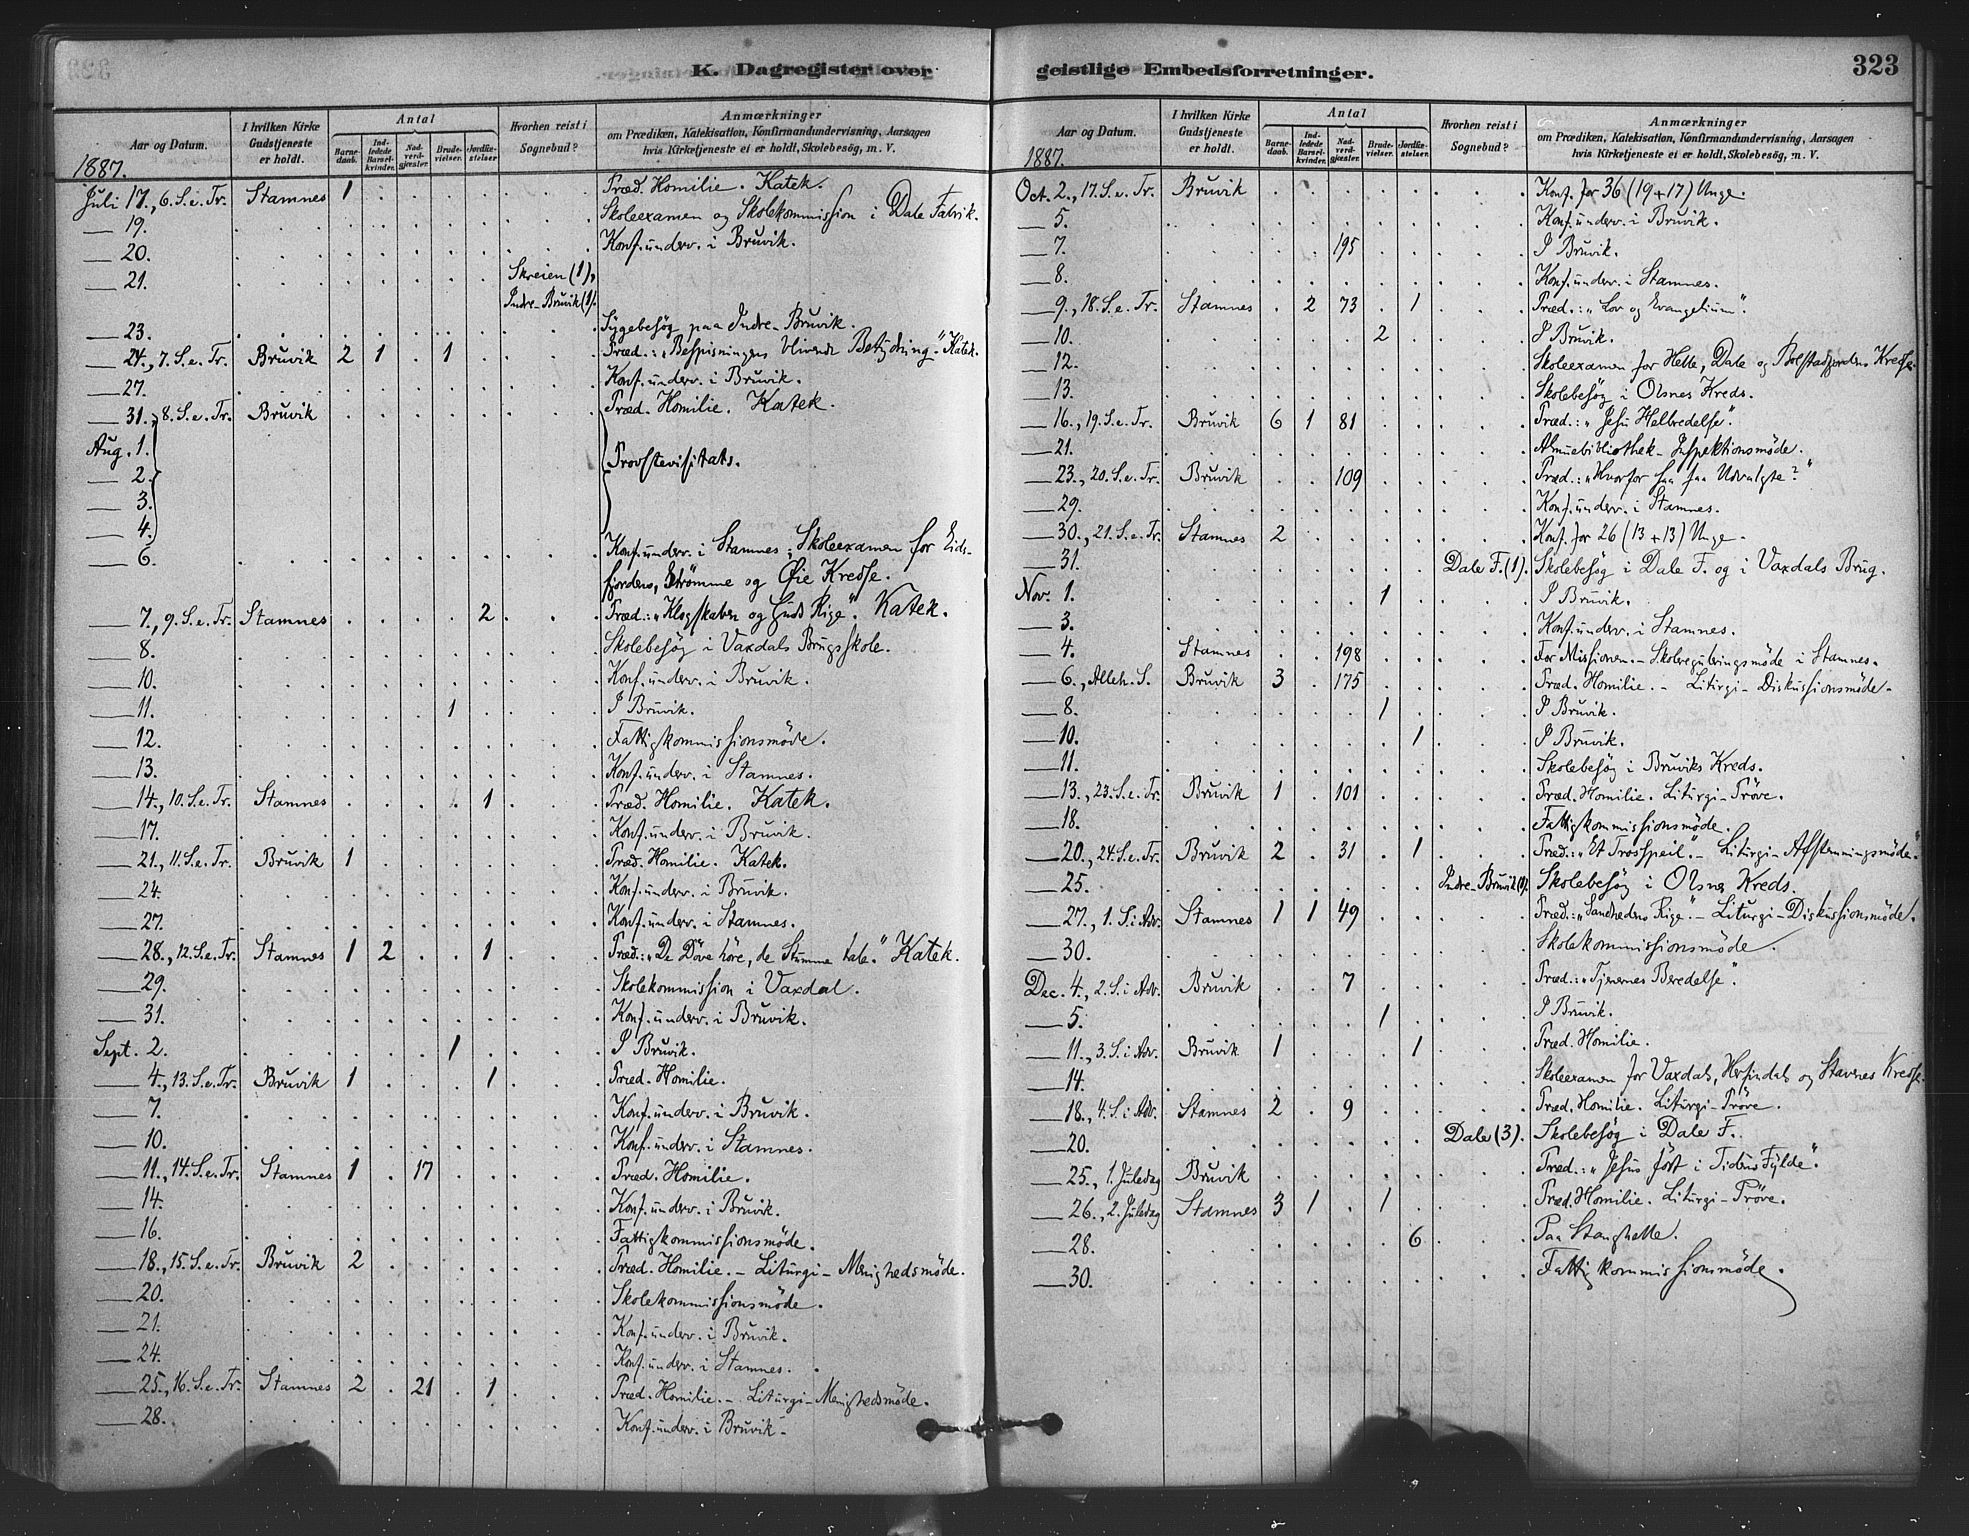 K. Dagregister over geistlige Embedsforretninger. 323
Aar og Datum. I hvilken Kirke Gudstjeneste er holdt. Antal Barnedaab. Indledede Barselkvinder. Nadverdgjæster. Brudevielser. Jordfæstelser Hvorhen reist i Sognebud? Anmærkninger om Prædiken, Katekisation, Konfirmandundervisning, Aarsagen hvis Kirketjeneste ei er holdt, Skolebesøg, m. V.
1887.
Juli 17., 6. S. e. Tr. Stamnes 1 . . . . . Præd. Homilie. Katek.
— 19. Skoleexamen og Skolekommission i Dale Fabrik.
— 20. Konf. underv. i Bruvik.
— 21. Skreien (1),
Indre-Bruvik (1).
— 23. Sygebesøg paa Indre-Bruvik.
— 24., 7. S. e. Tr. Bruvik 2 1 . 1 . Præd.: „Bespisningens blivende Betydning“. Katek.
— 27. Konf. underv. i Bruvik.
— 31., 8. S. e. Tr. Bruvik Præd. Homilie. Katek.
Aug. 1.
— 2. Provstevisitats.
— 3.
— 4.
— 6. Konf. underv. i Stamnes; Skoleexamen for Eids-
fjordens, Strømme og Øie Kredse.
— 7., 9. S. e. Tr. Stamnes . . . . 2 Præd.: „Klogskaben og Guds Rige“. Katek.
— 8. Skolebesøg i Vaxdals Brugsskole.
— 10. Konf. underv. i Bruvik.
— 11. . . . 1 . I Bruvik.
— 12. Fattigkommissionsmøde.
— 13. Konf. underv. i Stamnes.
— 14., 10. S. e. Tr. Stamnes . . . . 1 Præd. Homilie. Katek.
— 17. Konf. underv. i Bruvik.
— 21., 11. S. e. Tr. Bruvik 1 Præd. Homilie. Katek.
— 24. Konf. underv. i Bruvik.
— 27. Konf. underv. i Stamnes.
— 28., 12. S. e. Tr. Stamnes 1 2 . . 1 Præd.: „De Døve høre, de Stumme tale“. Katek.
— 29. Skolekommission i Vaxdal.
— 31. Konf. underv. i Bruvik.
Sept. 2. . . . 1 . I Bruvik.
— 4., 13. S. e. Tr. Bruvik 1 . . . 1 Præd. Homilie.
— 7. Konf. underv. i Bruvik.
— 10. Konf. underv. i Stamnes.
— 11., 14. S. e. Tr. Stamnes 1 . 17 Præd. Homilie.
— 14. Konf. underv. i Bruvik.
— 16. Fattigkommissionsmøde.
— 18., 15. S. e. Tr. Bruvik 2 Præd. Homilie. – Liturgi-Menighedsmøde.
— 20. Skolekommissionsmøde.
— 21. Konf. underv. i Bruvik.
— 24. Konf. underv. i Stamnes.
— 25., 16. S. e. Tr. Stamnes 2 . 21 . 1 Præd. Homilie. – Liturgi-Menighedsmøde.
— 28. Konf. underv. i Bruvik.
Aar og Datum. I hvilken Kirke Gudstjeneste er holdt. Antal Barnedaab. Indledede Barselkvinder. Nadverdgjæster. Brudevielser. Jordfæstelser. Hvorhen reist i Sognebud? Anmærkninger om Prædiken, Katekisation, Konfirmandundervisning, Aarsagen hvis Kirketjeneste ei er holdt, Skolebesøg, m. V.
1887.
Oct. 2., 17. S. e. Tr. Bruvik Konf. for 36 (19+17) Unge.
— 5. Konf. underv. i Bruvik.
— 7. . . 195 I Bruvik.
— 8. Konf. underv. i Stamnes.
— 9., 18. S. e. Tr. Stamnes . 2 73 . 1 Præd.: „Lov og Evangelium“.
— 10. . . . 2 I Bruvik.
— 12. Skoleexamen for Helle, Dale og Bolstadfjordens Kredse.
— 13. Skolebesøg i Olsnes Kreds.
— 16., 19. S. e. Tr. Bruvik 6 1 81 Præd.: „Jesu Helbredelse“.
— 21. Almuebibliothek-Inspektionsmøde.
— 23., 20. S. e. Tr. Bruvik . . 109 Præd.: „Hvorfor saa faa Udvalgte?“
— 29. Konf. underv. i Stamnes.
— 30., 21. S. e. Tr. Stamnes 2 Konf. for 26 (13+13) Unge.
— 31. Dale F. (1). Skolebesøg i Dale F. og i Vaxdals Brug.
Nov. 1. . . . 1 I Bruvik.
— 3. Konf. underv. i Stamnes.
— 4. Stamnes . . 198 For Missionen. – Skolereguleringsmøde i Stamnes.
— 6., Alleh. S. Bruvik 3 . 175 Præd. Homilie. – Liturgi-Diskussionsmøde.
— 8. . . . 1 I Bruvik.
— 10. . . . . 1 I Bruvik.
— 11. Skolebesøg i Bruviks Kreds.
— 13., 23. S. e. Tr. Bruvik 1 . 101 Præd. Homilie. Liturgi-Prøve.
— 18. Fattigkommissionsmøde.
— 20., 24. S. e. Tr. Bruvik 2 . 31 . 1 Præd.: „Et Trosspeil“. – Liturgi-Afstemningsmøde.
— 25. Indre-Bruvik (1). Skolebesøg i Olsnes Kreds.
— 27., 1. S. i Adv. Stamnes 1 1 49 Præd.: „Sandhedens Rige“. – Liturgi-Diskussionsmøde.
— 30. Skolekommissionsmøde.
Dec. 4., 2. S. i Adv. Bruvik . . 7 Præd.: „Tjenernes Beredelse“.
— 5. . . . 1 I Bruvik.
— 11., 3. S. i Adv. Bruvik 1 . . . 1 Præd. Homilie.
— 14. Skoleexamen for Vaxdals, Herfindals og Stavnes Kredse.
— 18., 4. S. i Adv. Stamnes 2 . 9 Præd. Homilie. Liturgi-Prøve.
— 20. Dale (3). Skolebesøg i Dale F.
— 25., 1. Juledag Bruvik Præd.: „Jesus født i Tidens Fylde“.
— 26., 2. Juledag Stamnes 3 1 . 1 Præd. Homilie. Liturgi-Prøve.
— 28. . . . . 6 Paa Stanghelle.
— 30. Fattigkommissionsmøde.